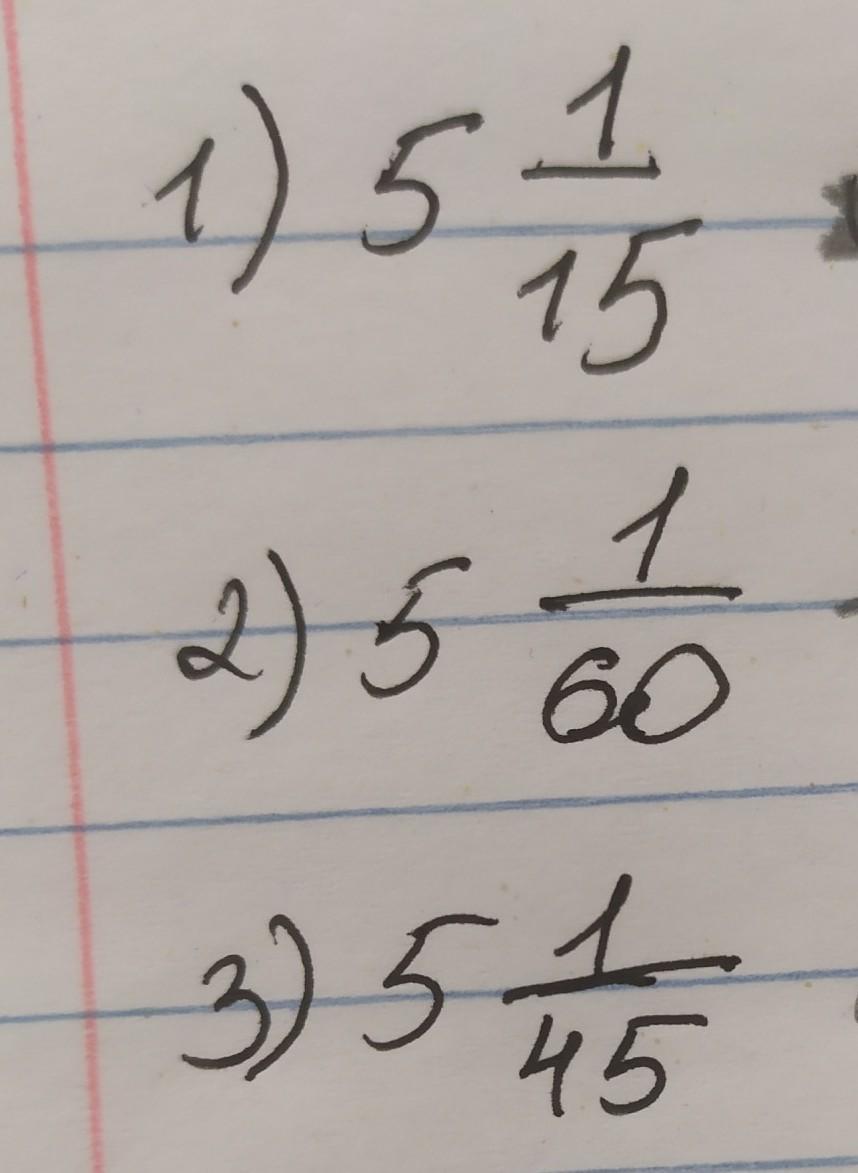 1) 5 1/15
2) 5 1/60
3) 5 1/45